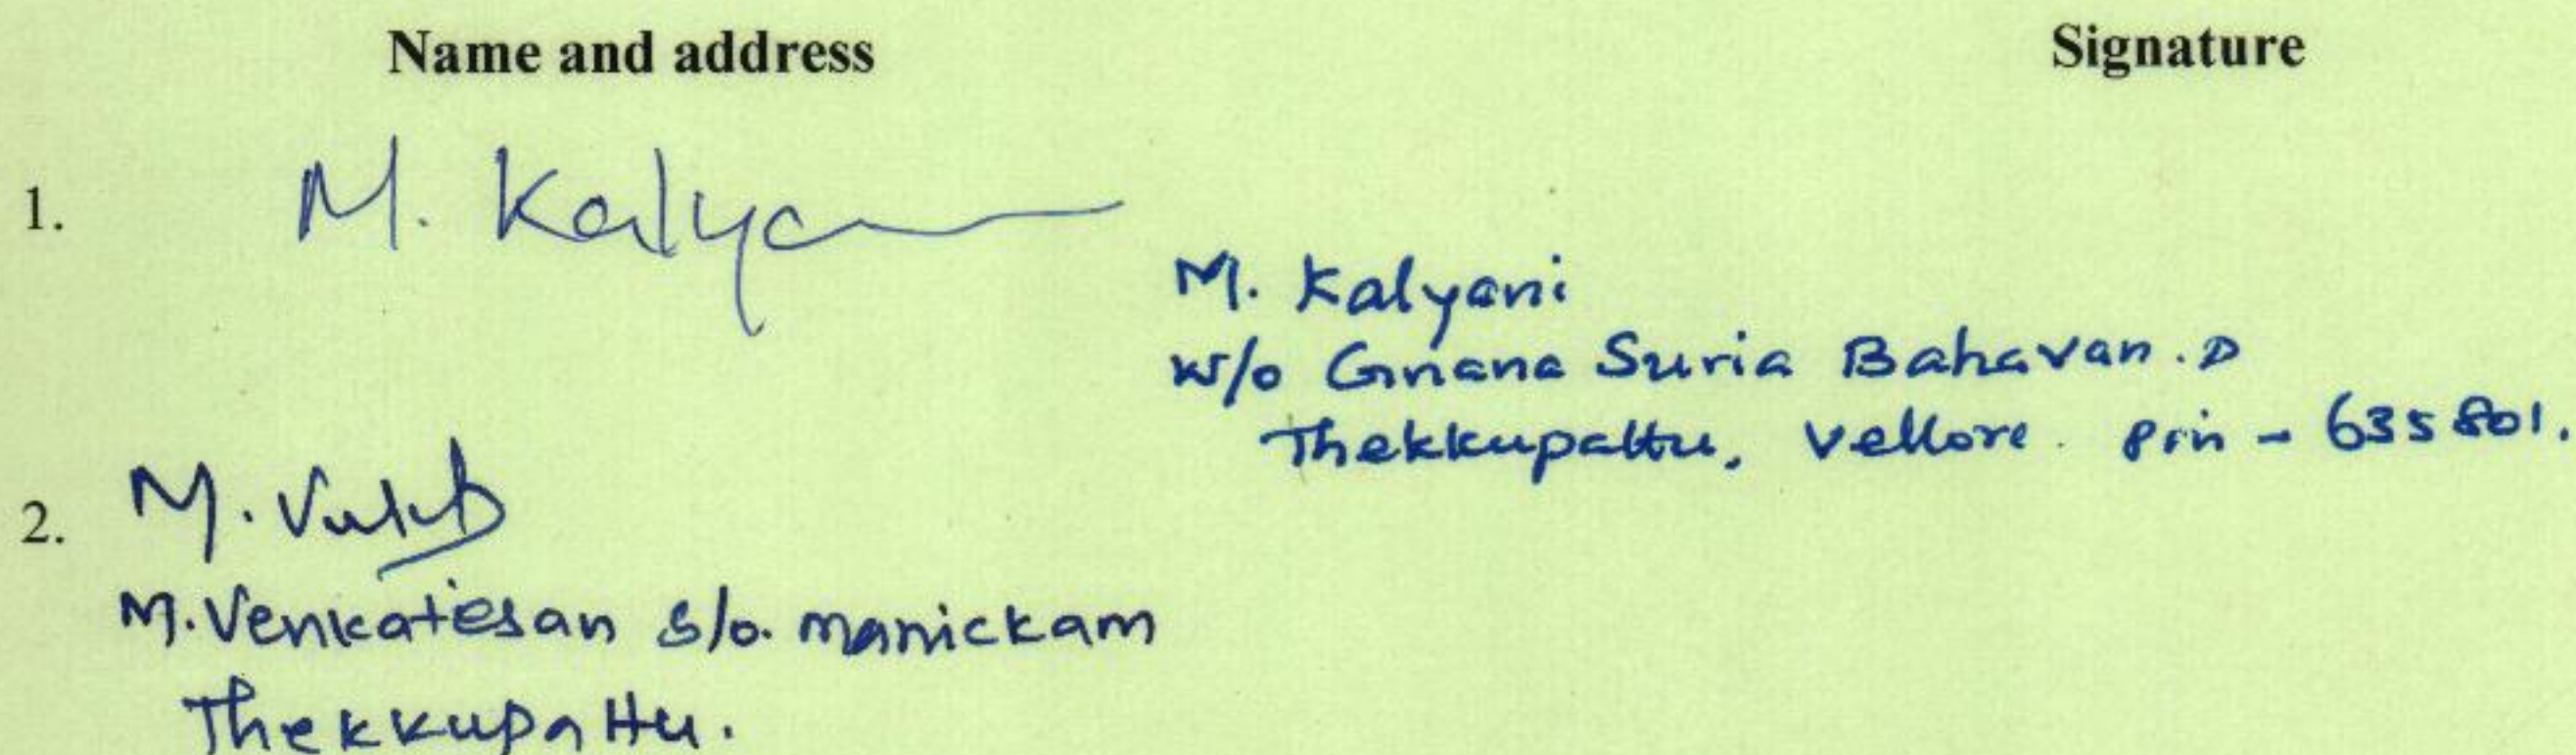 Name and address Signature
1. M. Kalya
M. Kalyani
w/o Gnana Suria Bahavan. D
Thekkupattu, Vellore. Pin - 635801.
2. M.
M. Venkatesan S/o. Manickam
Thekkupattu.